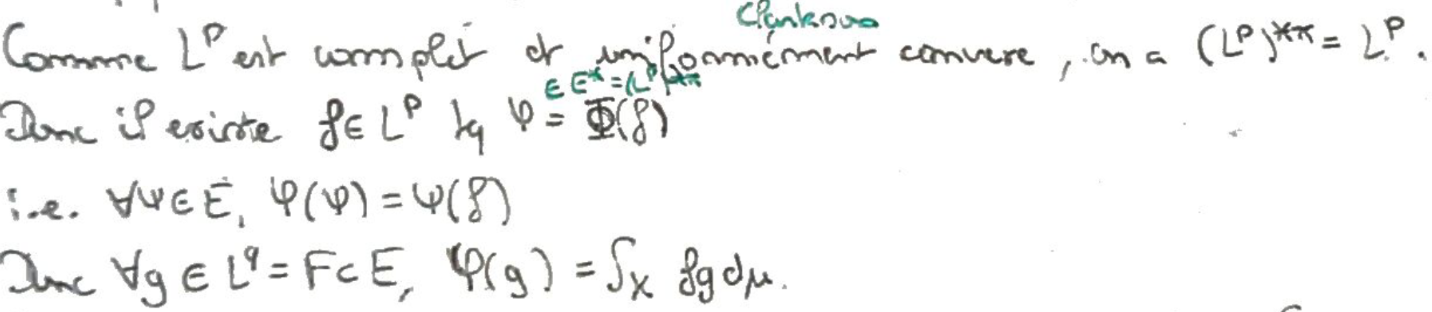 Clarkson
Comme L^p est complet et uniformément convexe, on a (L^p)** = L^p.
∈ E* = (L^p)**
Donc il existe f ∈ L^p tq φ = Φ(f)
i.e. ∀ψ ∈ E, φ(ψ) = ψ(f)
Donc ∀g ∈ L^q = F ⊂ E, φ(g) = ∫_X fg dμ.